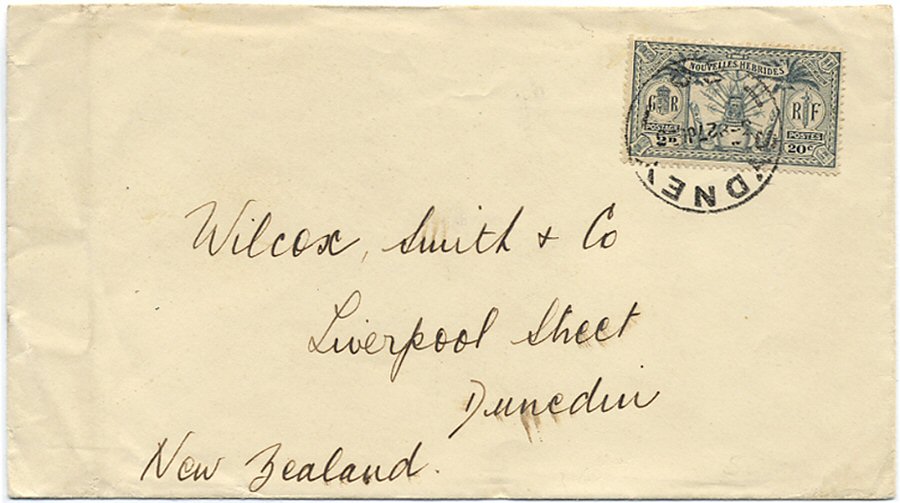 NOUVELLES HEBRIDES
G R
R F
POSTAGE
POSTES
2D
20c
SYDNEY
Wilcox, Smith & Co
Liverpool Street
Dunedin
New Zealand.